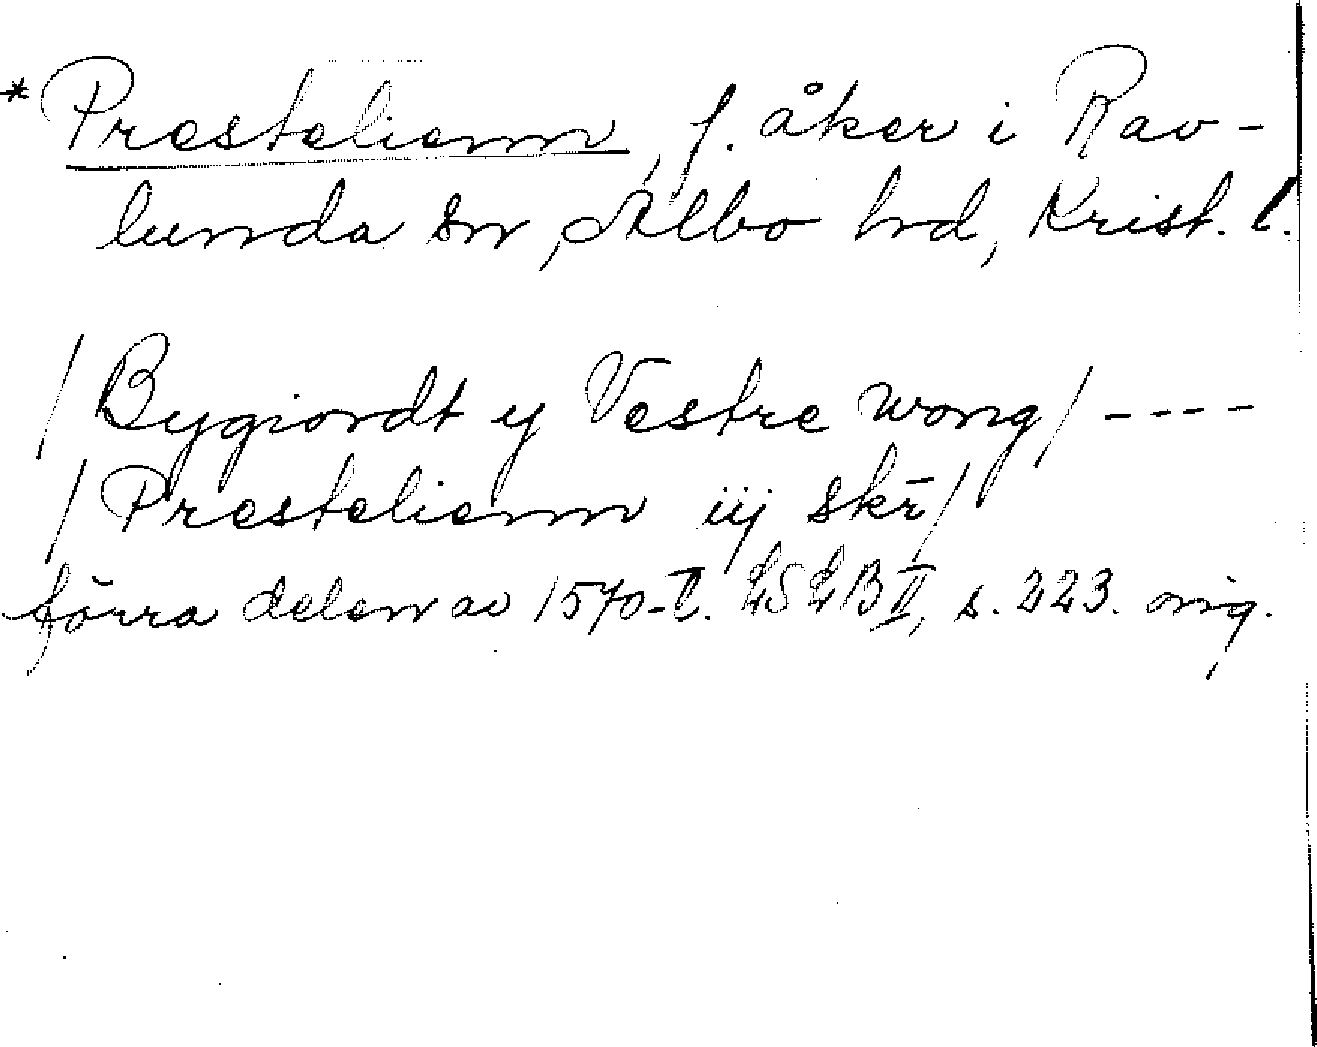 *Prestelienn, f. åker i Rav-
lunda sn, Albo hd, Krist. l.
/Bygiordt y Vestre wong/ ----
/Prestelienn iij skr̄/
förra delen av 1570-t. LSLB II, s. 223. orig.